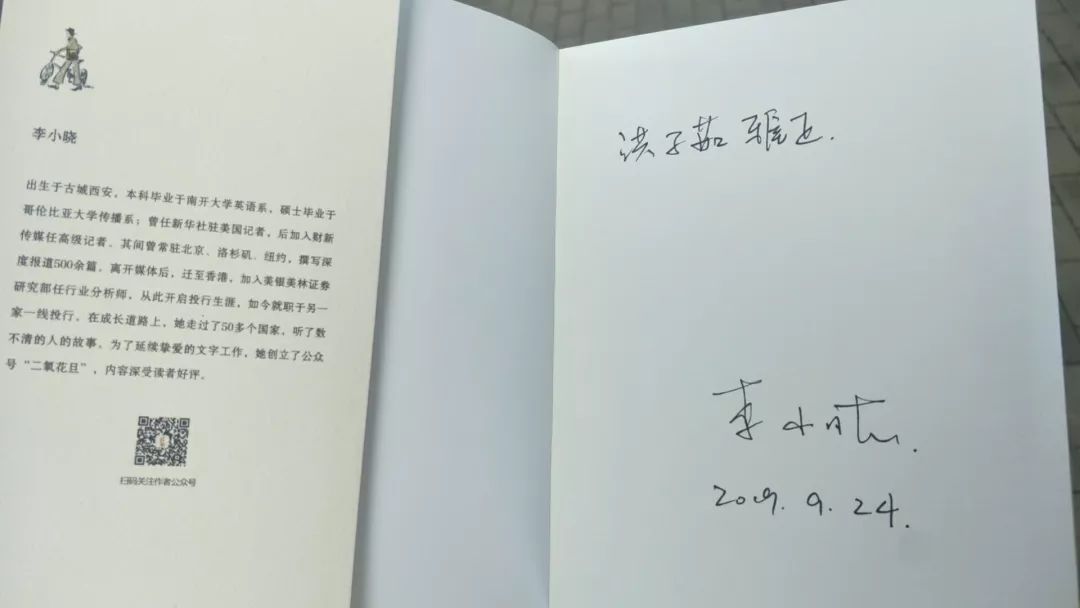 李小晓
出生于古城西安，本科毕业于南开大学英语系，硕士毕业于
哥伦比亚大学传播系；曾任新华社驻美国记者，后加入财新
传媒任高级记者。其间曾常驻北京、洛杉矶、纽约，撰写深
度报道500余篇。离开媒体后，迁至香港，加入美银美林证券
研究部任行业分析师，从此开启投行生涯，如今就职于另一
家一线投行。在成长道路上，她走过了50多个国家，听了数
不清的人的故事。为了延续挚爱的文字工作，她创立了公众
号“二氧花旦”，内容深受读者好评。
扫码关注作者公众号
洪子茹 雅正.
李小晓.
2019. 9. 24.